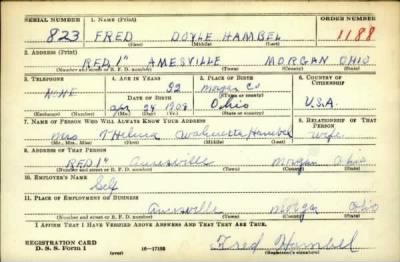 SERIAL NUMBER 1. NAME (Print) ORDER NUMBER
823 FRED DOYLE HAMBEL 1188
(First) (Middle) (Last)
2. ADDRESS (Print)
RED. 1" AMESVILLE MORGAN OHIO
(Number and street or R. F. D. number) (Town) (County) (State)
3. TELEPHONE 4. AGE IN YEARS 5. PLACE OF BIRTH 6. COUNTRY OF CITIZENSHIP
NONE 32 Morgan Co
DATE OF BIRTH
Apr 24 1908 Ohio U.S.A.
(Exchange) (Number) (Mo.) (Day) (Yr.) (State or country)
7. NAME OF PERSON WHO WILL ALWAYS KNOW YOUR ADDRESS 8. RELATIONSHIP OF THAT PERSON
Mrs Hambel wife
(Mr., Mrs., Miss) (First) (Middle) (Last)
9. ADDRESS OF THAT PERSON
RED 1" Amesville Morgan Ohio
(Number and street or R. F. D. number) (Town) (County) (State)
10. EMPLOYER'S NAME
Self
11. PLACE OF EMPLOYMENT OR BUSINESS
Amesville Morgan Ohio
(Number and street or R. F. D. number) (Town) (County) (State)
I AFFIRM THAT I HAVE VERIFIED ABOVE ANSWERS AND THAT THEY ARE TRUE.
REGISTRATION CARD
D. S. S. Form 1 (over) 16—17105 Fred Hambel
(Registrant's signature)